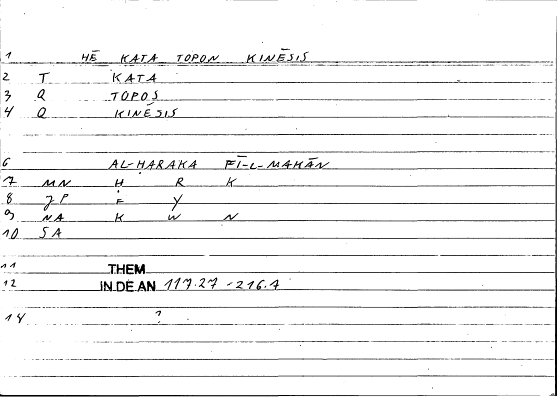 1 HĒ KATA TOPON KINĒSIS
2 T KATA
3 Q TOPOS
4 Q KINĒSIS
6 AL-ḤARAKA FĪ-L-MAKĀN
7 MN Ḥ R K
8 JP F Y
9 NA K W N
10 SA
11 THEM
12 IN.DE.AN 117.27 - 216.4
14 ?